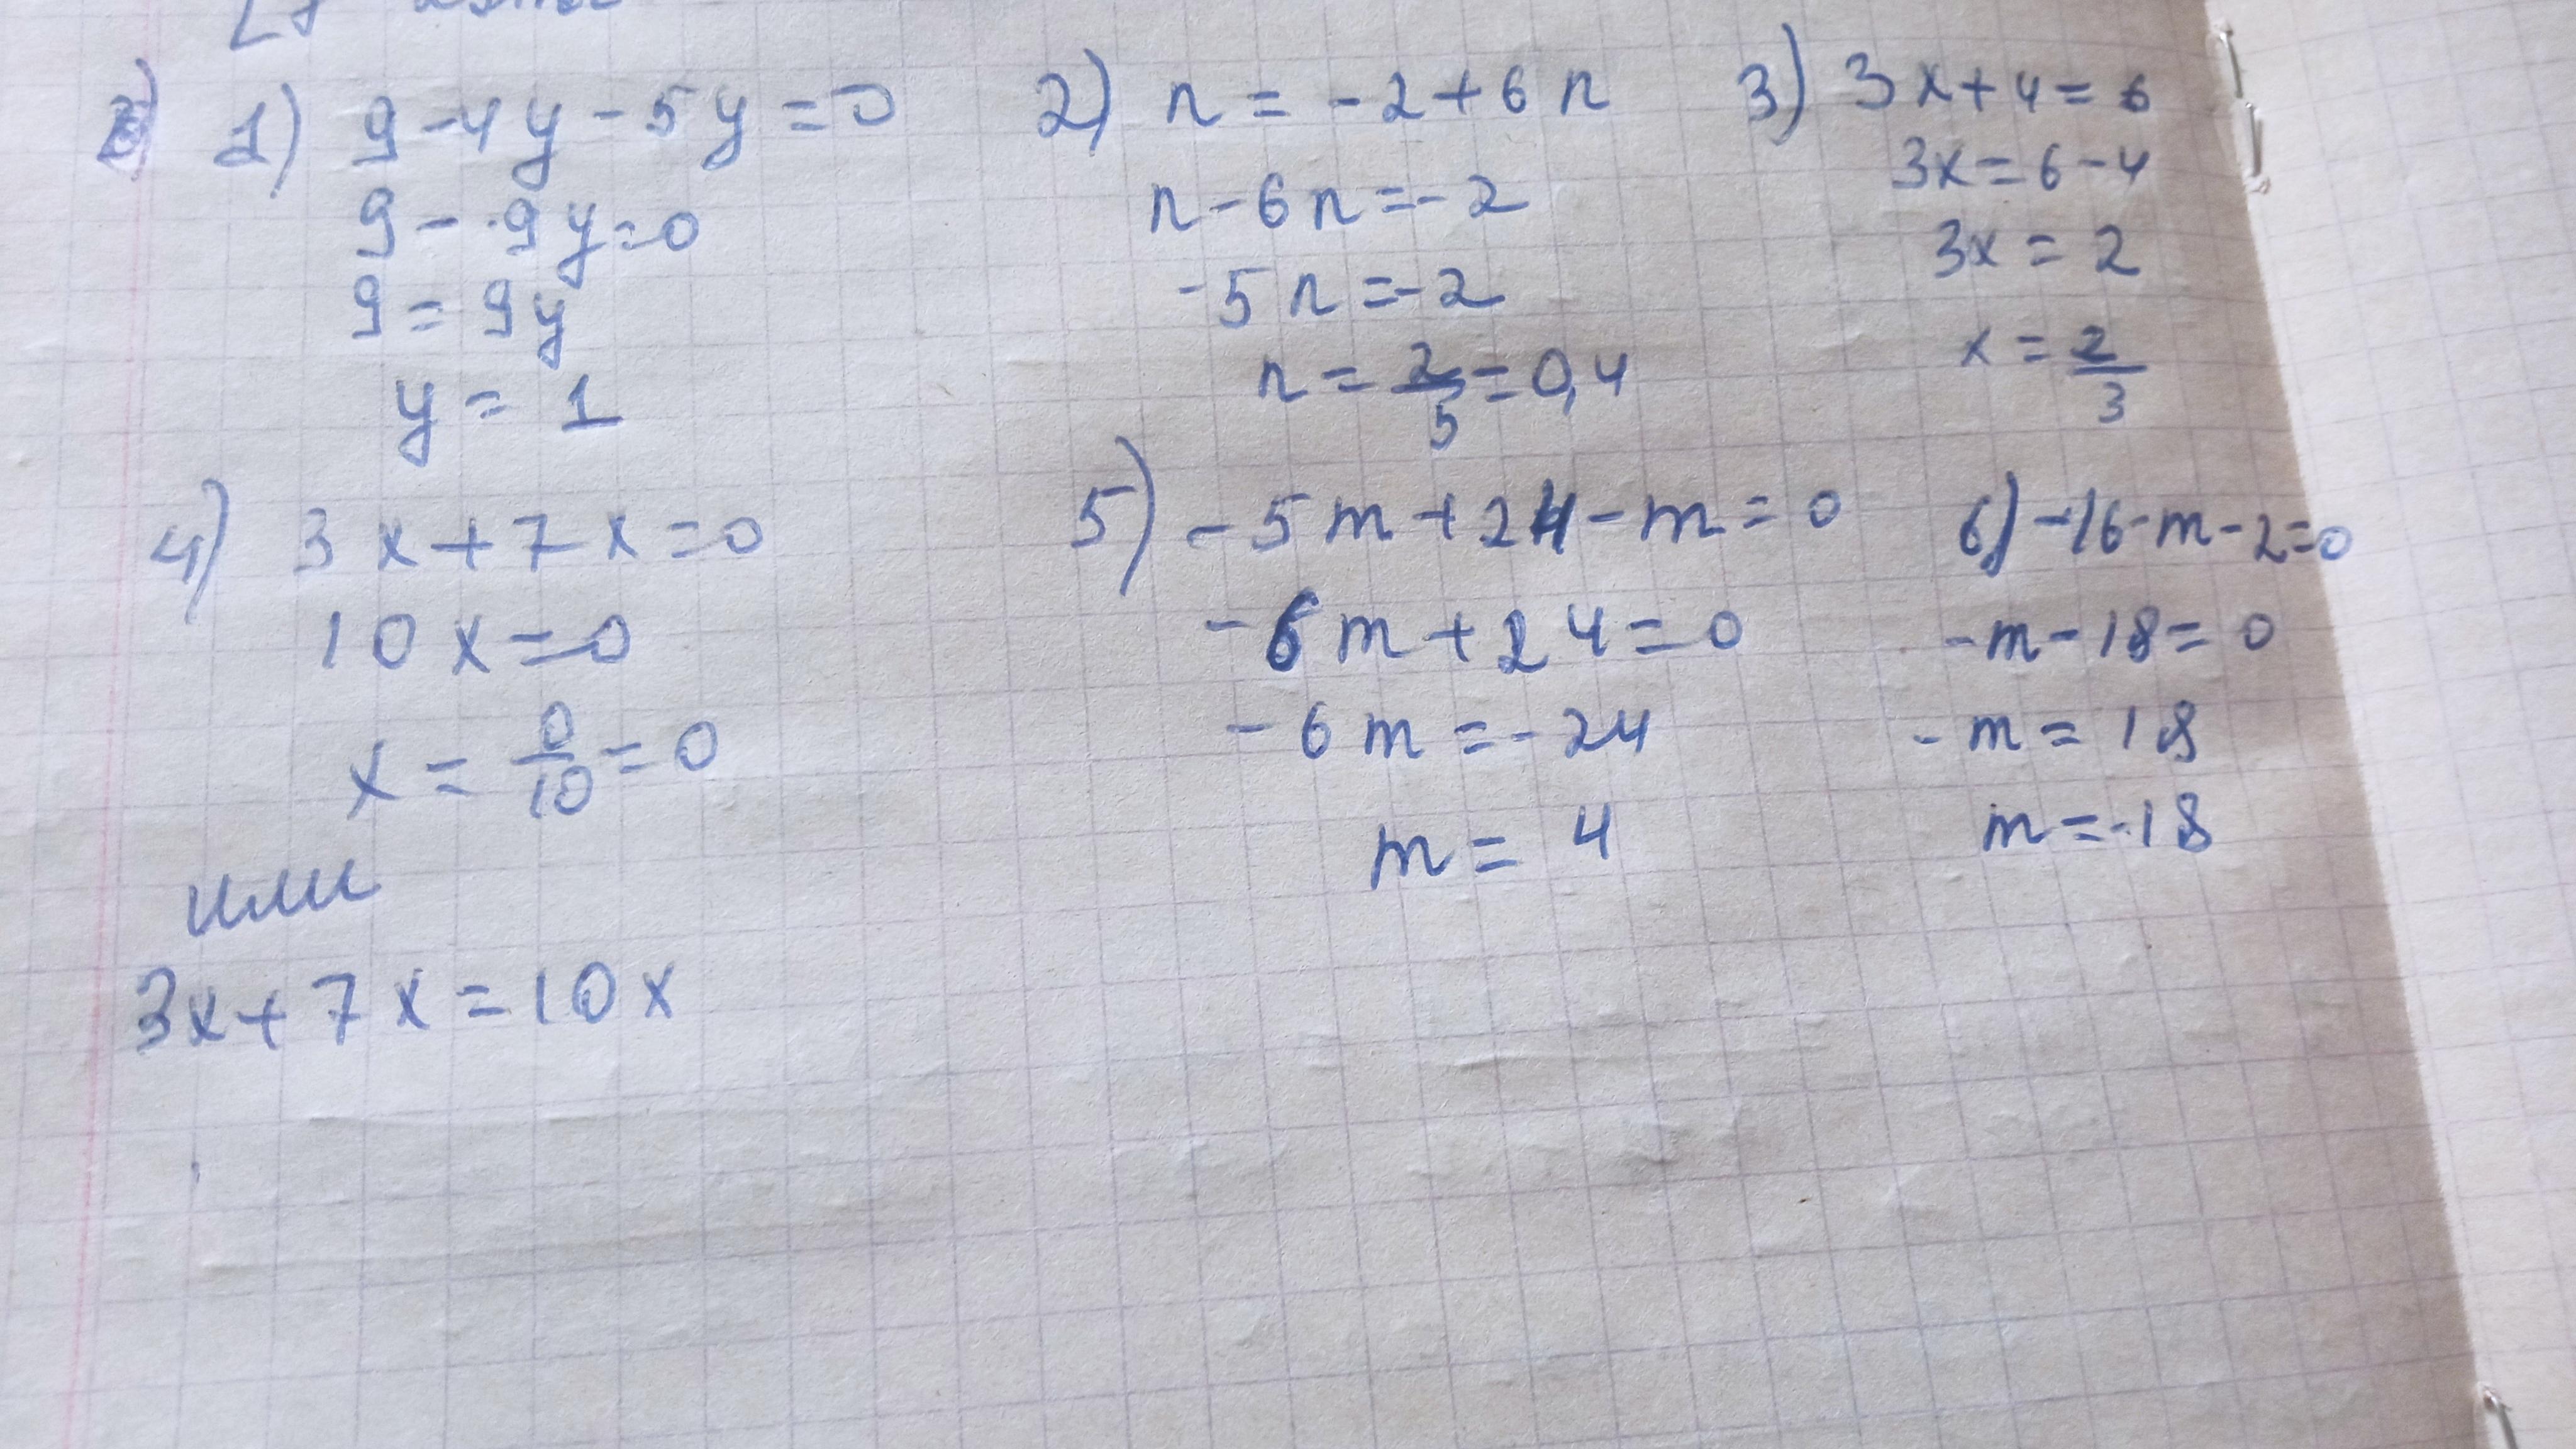 1) 9-4y-5y=0
9-9y=0
9=9y
y=1
2) n=-2+6n
n-6n=-2
-5n=-2
n=2/5=0,4
3) 3x+4=6
3x=6-4
3x=2
x=2/3
4) 3x+7x=0
10x=0
x=0/10=0
или
3x+7x=10x
5) -5m+24-m=0
-6m+24=0
-6m=-24
m=4
6) -16-m-2=0
-m-18=0
-m=18
m=-18